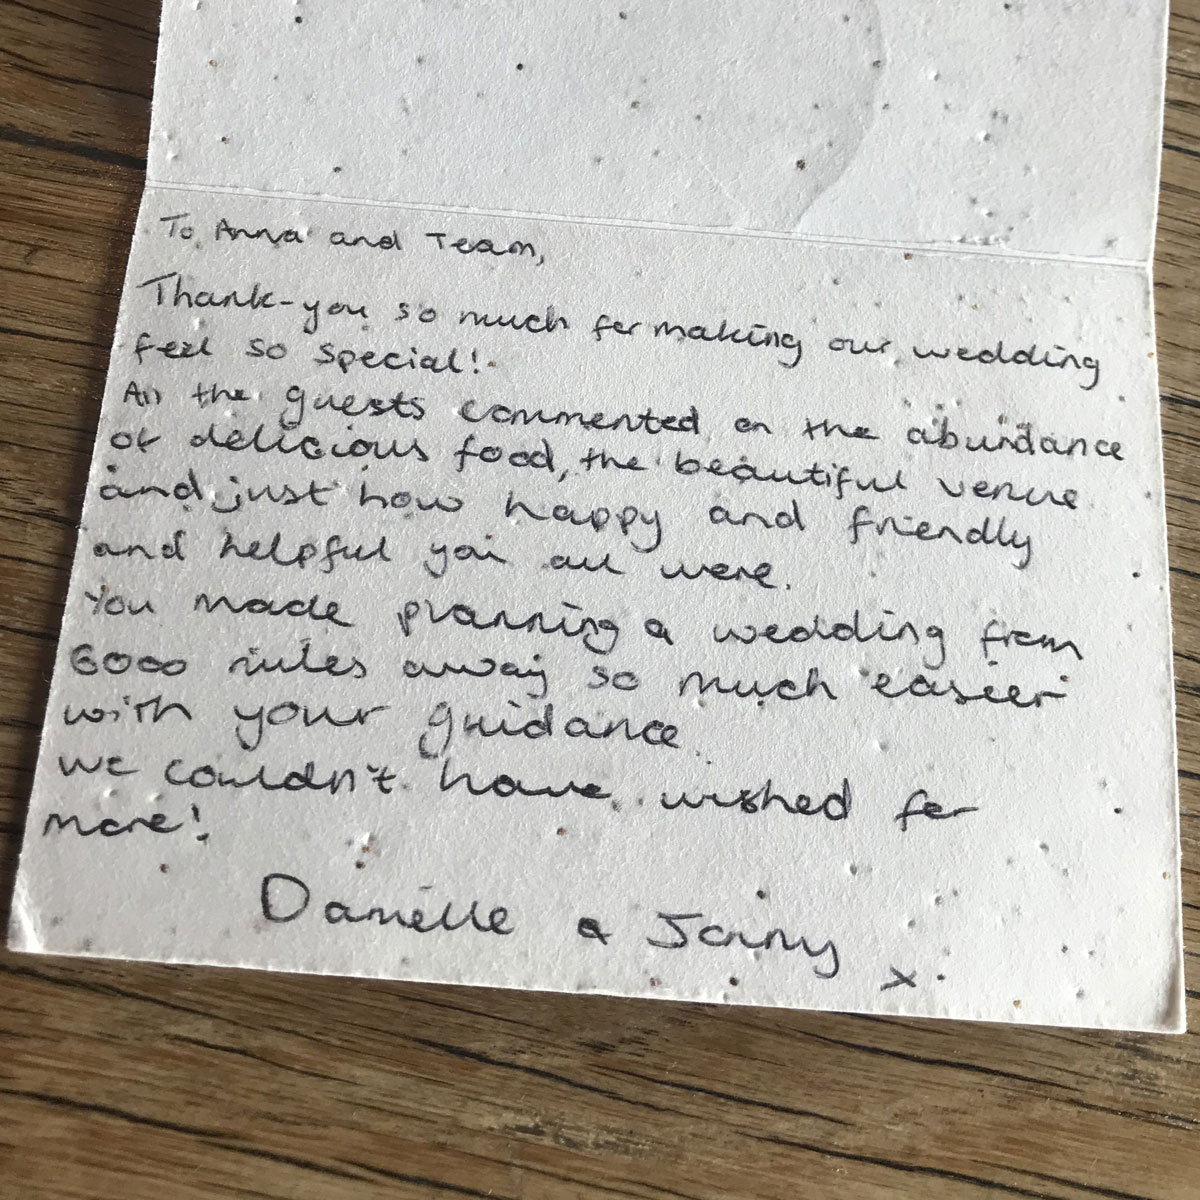 To Anna and Team,
Thank-you so much for making our wedding
feel so special!
All the guests commented on the abundance
of delicious food, the beautiful venue
and just how happy and friendly
and helpful you all were.
You made planning a wedding from
6000 miles away so much easier
with your guidance.
We couldn't have wished for
more!
Danielle & Jonny x